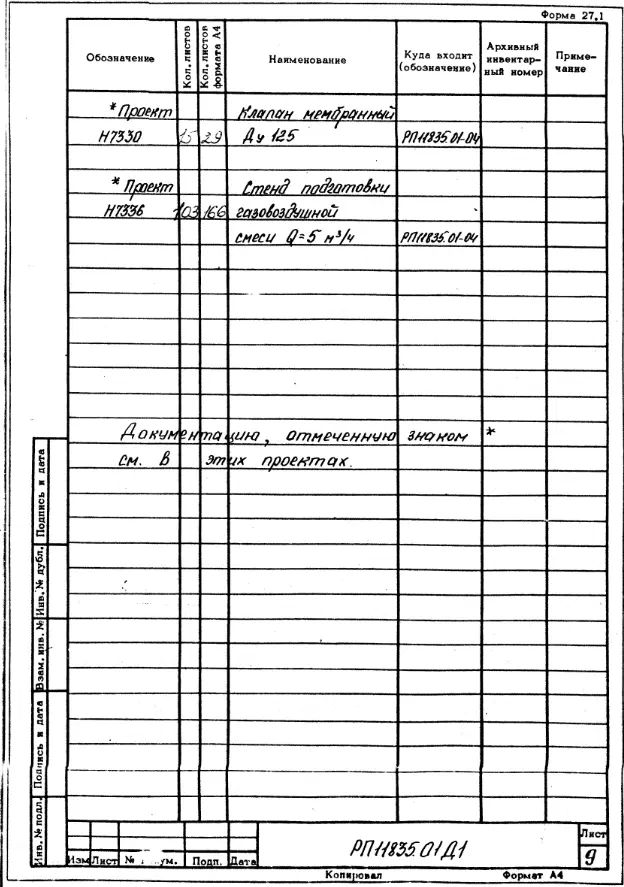 Форма 27,1
Обозначение Кол.листов Кол.листов формата А4 Наименование Куда входит (обозначение) Архивный инвентар- ный номер Приме- чание
*Проект Клапан мембранный
Н7330 15 29 Ду 125 РП11835.01-04
* Проект Стенд подготовки
Н7336 103 166 газовоздушной
смеси Q=5 м³/ч РП11835.01-04
Документацию, отмеченную знаком *
см. в этих проектах.
Подпись и дата
Инв.№ дубл.
Взам.инв.№
Подпись и дата
Инв.№подл.
РП11835.01Д1
Лист
9
Изм Лист № ум. Подп. Дата
Копировал Формат А4